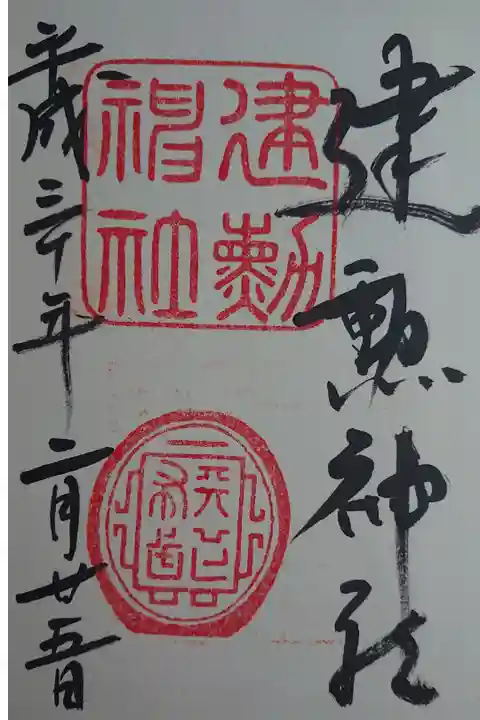 建勲神社
建勲
神社
平成三十年二月廿五日